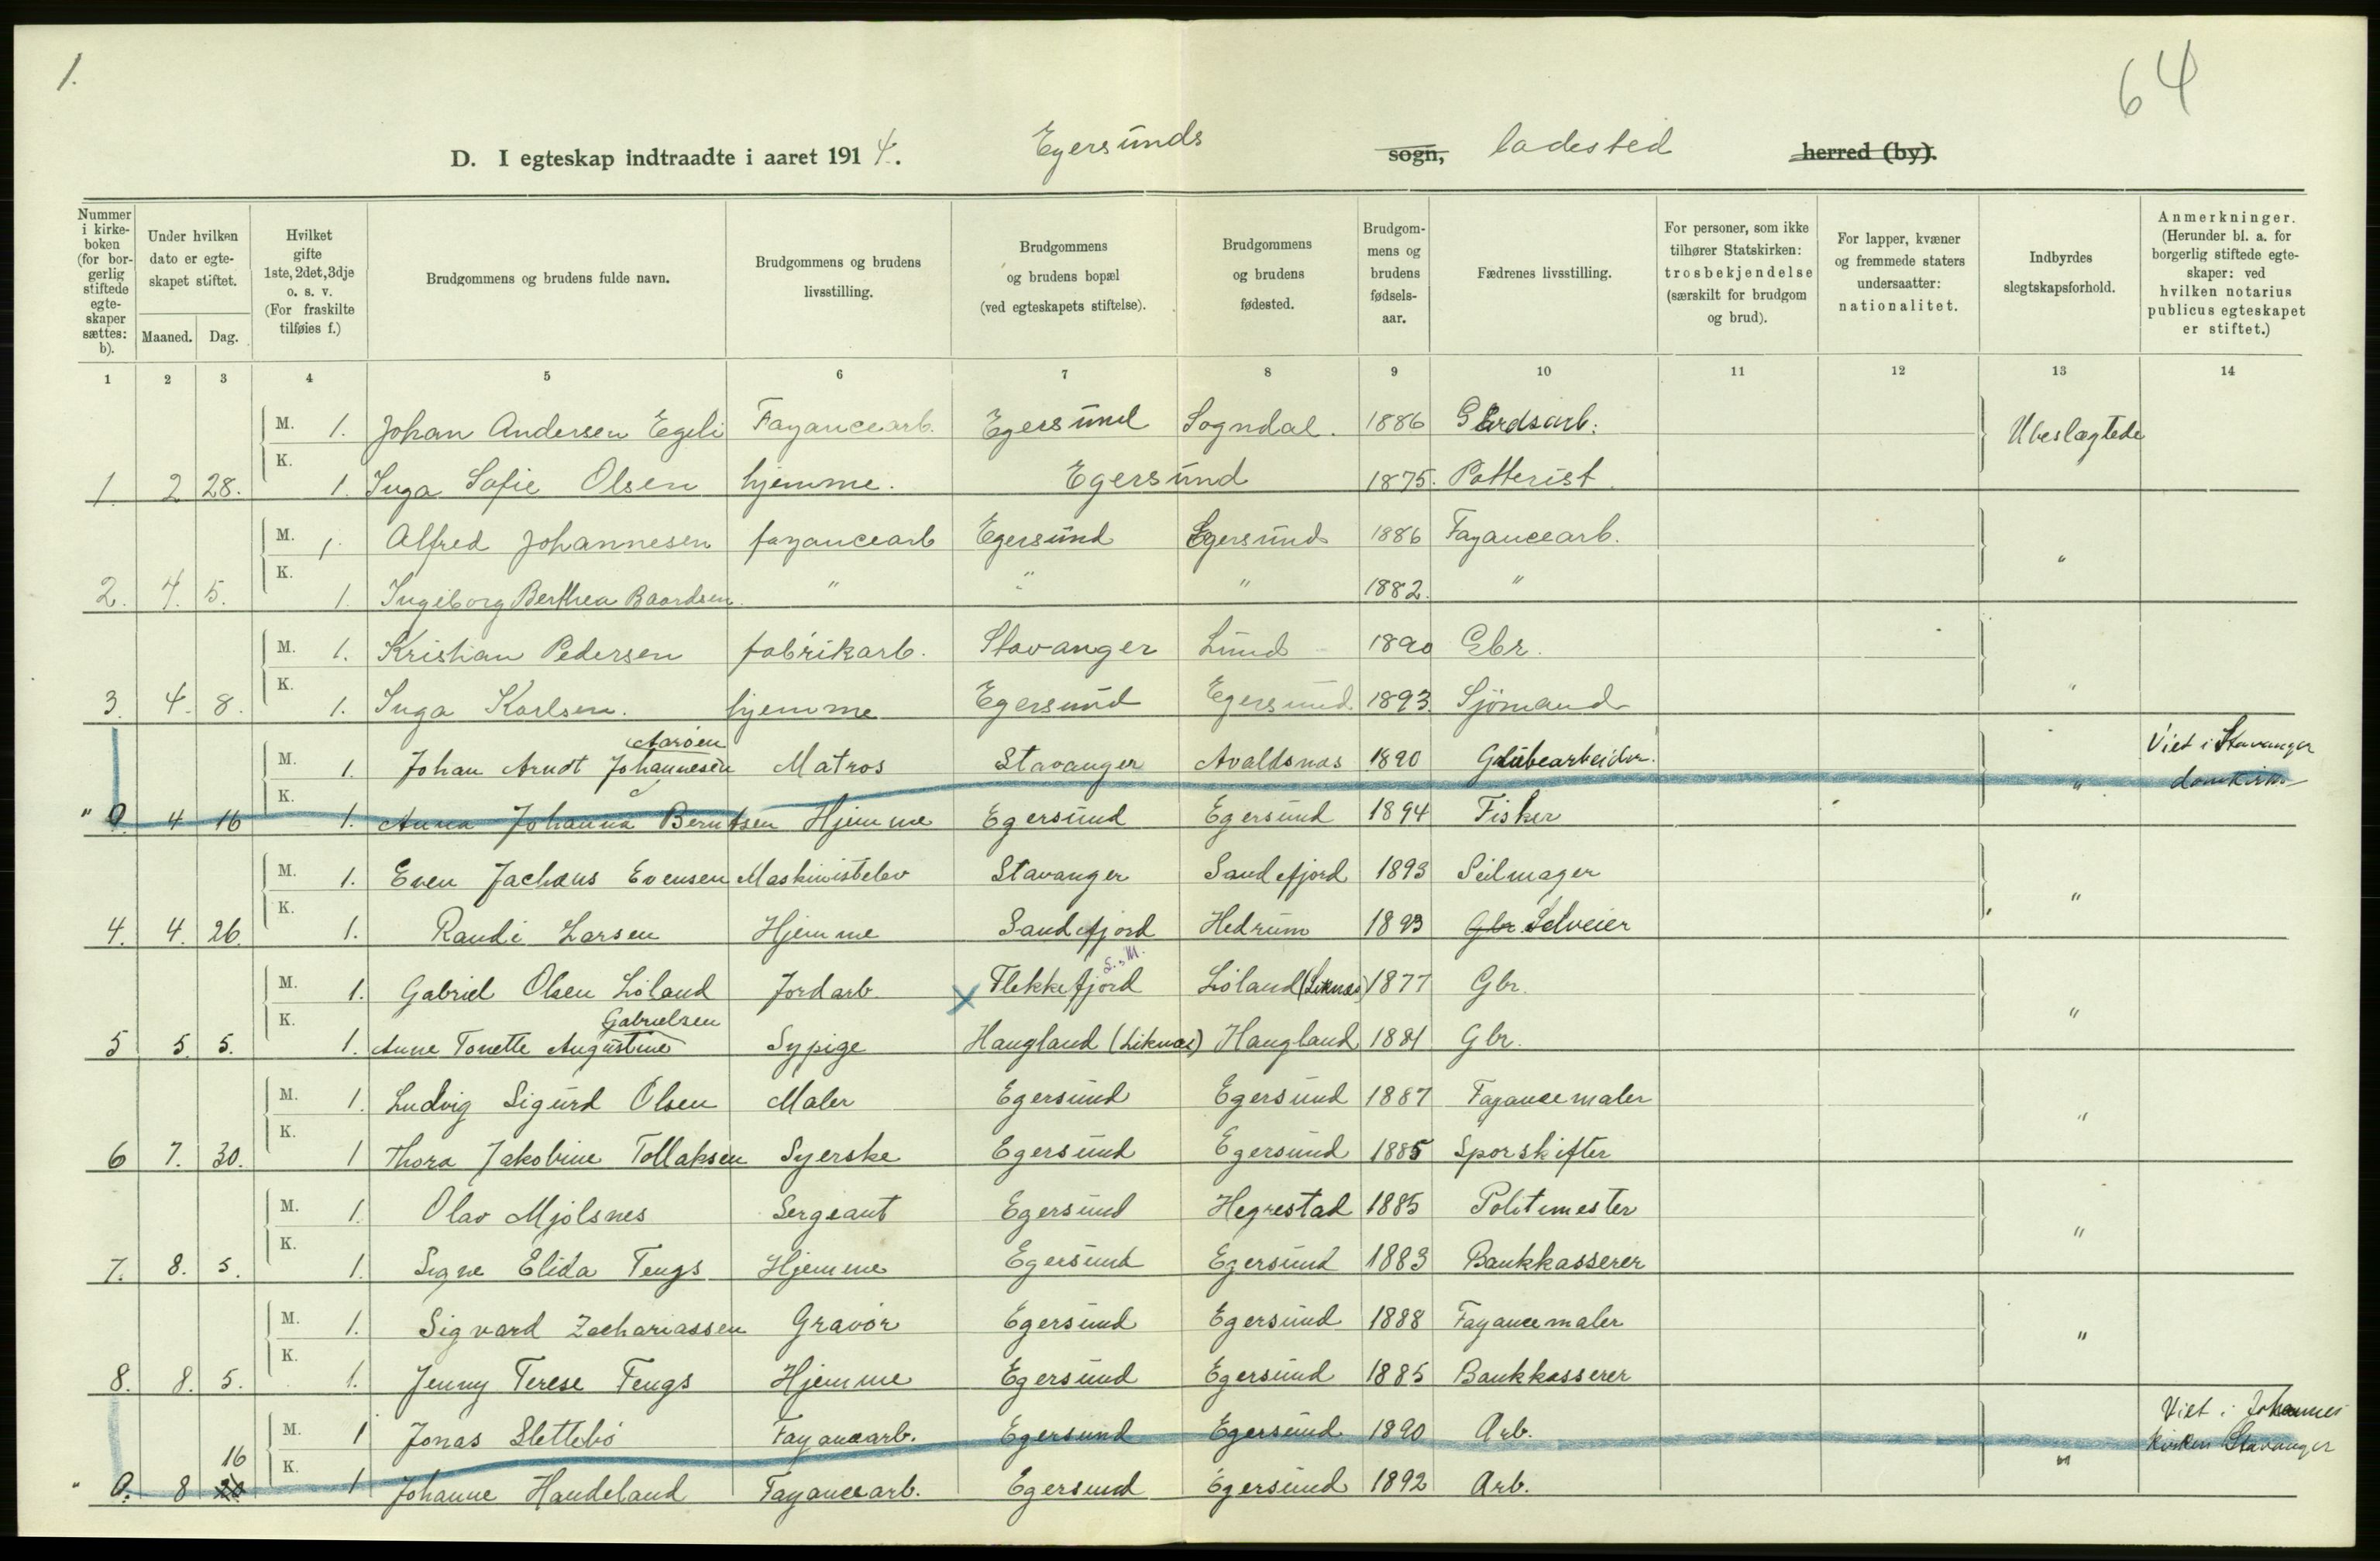 1.
64
D. I egteskap indtraadte i aaret 1914. Egersunds sogn, ladested herred (by).
Nummer i kirke-boken (for bor-gerlig stiftede egte-skaper sættes: b).
Under hvilken dato er egte-skapet stiftet.
Maaned. Dag.
Hvilket gifte 1ste, 2det, 3dje o. s. v. (For fraskilte tilføies f.)
Brudgommens og brudens fulde navn.
Brudgommens og brudens livsstilling.
Brudgommens og brudens bopæl (ved egteskapets stiftelse).
Brudgommens og brudens fødested.
Brudgom-mens og brudens fødsels-aar.
Fædrenes livsstilling.
For personer, som ikke tilhører Statskirken: trosbekjendelse (særskilt for brudgom og brud).
For lapper, kvæner og fremmede staters undersaatter: nationalitet.
Indbyrdes slegtskapsforhold.
Anmerkninger. (Herunder bl. a. for borgerlig stiftede egte-skaper: ved hvilken notarius publicus egteskapet er stiftet.)
1 2 3 4 5 6 7 8 9 10 11 12 13 14
M. 1. Johan Andersen Egeli Fayancearb. Egersund Sogndal. 1886 Gårdsarb. Ubeslægtede
1. 2 28. K. 1. Inga Sofie Olsen hjemme. Egersund 1875. Potterist.
M. 1. Alfred Johannesen fayancearb Egersund Egersund 1886 Fayancearb. "
2. 4. 5. K. 1. Ingeborg Berthea Baardsen. " " " 1882. "
M. 1. Kristian Pedersen fabrikarb. Stavanger Lund 1890 Gbr.
3. 4. 8. K. 1. Inga Karlsen. hjemme Egersund Egersund. 1893. Sjömand "
Aarøen Viet i Stavanger
M. 1. Johan Arndt Johannesen Matros Stavanger Avaldsnas 1890 Grubearbeider. " domkirke
" 0. 4 16 K. 1. Anna Johanna Berntsen Hjemme Egersund Egersund 1894 Fisker
M. 1. Even Jachæus Evensen Maskinistelev Stavanger Sandefjord 1893 Seilmager "
4. 4. 26. K. 1. Randi Larsen Hjemme Sandefjord Hedrum 1893 Gbr. Selveier
M. 1. Gabriel Olsen Löland Jordarb. x Flekkefjord L.M. Löland (Liknæs) 1877 Gbr.
Gabrielsen "
5 5. 5. K. 1. Anne Tonette Augustine Sypige Haugland (Liknæs) Haugland 1881 Gbr.
M. 1. Ludvig Sigurd Olsen Maler Egersund Egersund 1887 Fayancemaler "
6 7. 30. K. 1 Thora Jakobine Tollaksen Syerske Egersund Egersund 1885 Sporskifter
M. 1. Olav Mjölsnes Sergeant Egersund Hegrestad 1885 Politimester "
7. 8. 5. K. 1. Signe Elida Tengs Hjemme Egersund Egersund 1883 Bankkasserer
M. 1. Sigvard Zachariassen Gravör Egersund Egersund 1888 Fayancemaler "
8. 8. 5. K. 1. Jenny Terese Tengs Hjemme Egersund Egersund 1885 Bankkasserer
Viet i Johannes
M. 1 Jonas Slettebö Fayancearb. Egersund Egersund 1890 Arb. " kirken Stavanger
16
" 0. 8 20 K. 1 Johanne Handeland Fayancearb. Egersund Egersund 1892 Arb.